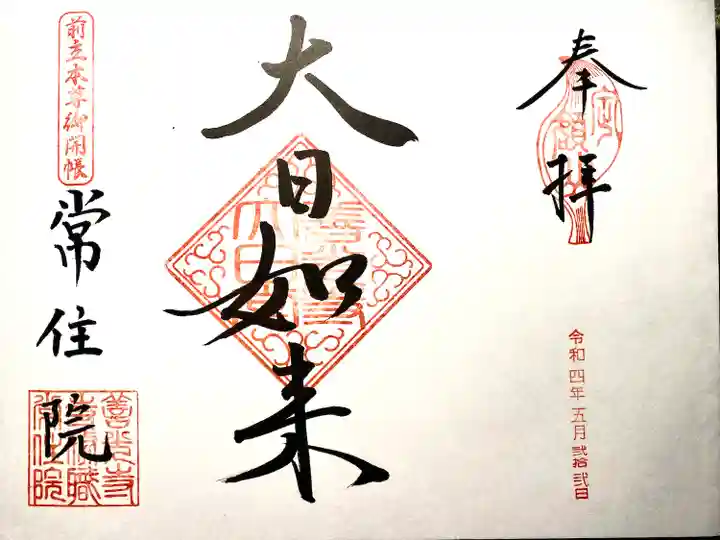 奉拝
令和四年五月弐拾弐日
大日如来
前立本尊御開帳
常住院
善光寺
常住院